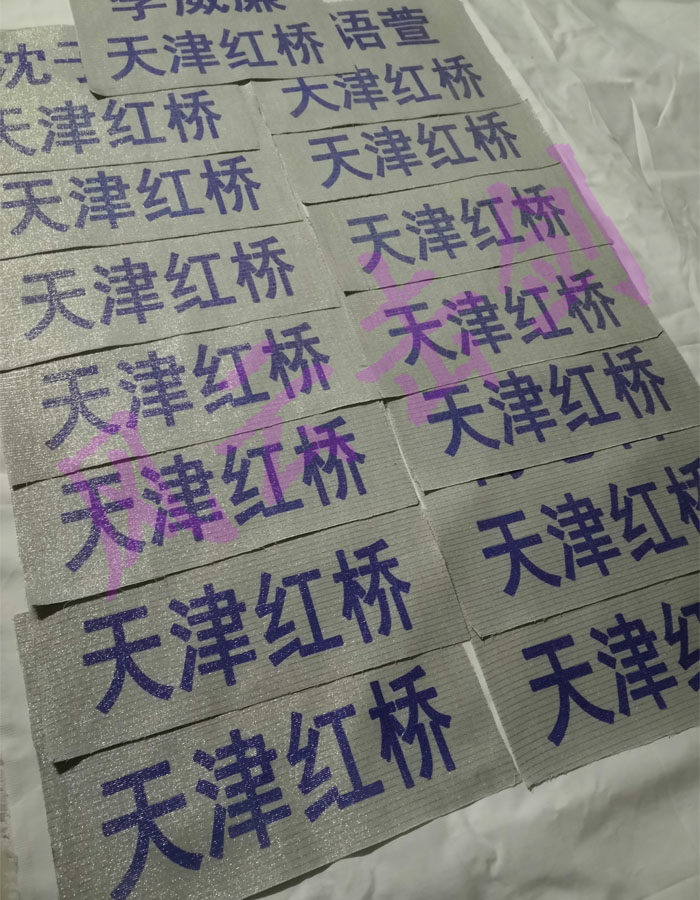 李威廉
天津红桥
语萱
沈子
天津红桥
天津红桥
天津红桥
天津红桥
天津红桥
天津红桥
天津红桥
天津红桥
天津红桥
天津红桥
天津红桥
天津红桥
天津红桥
天津红